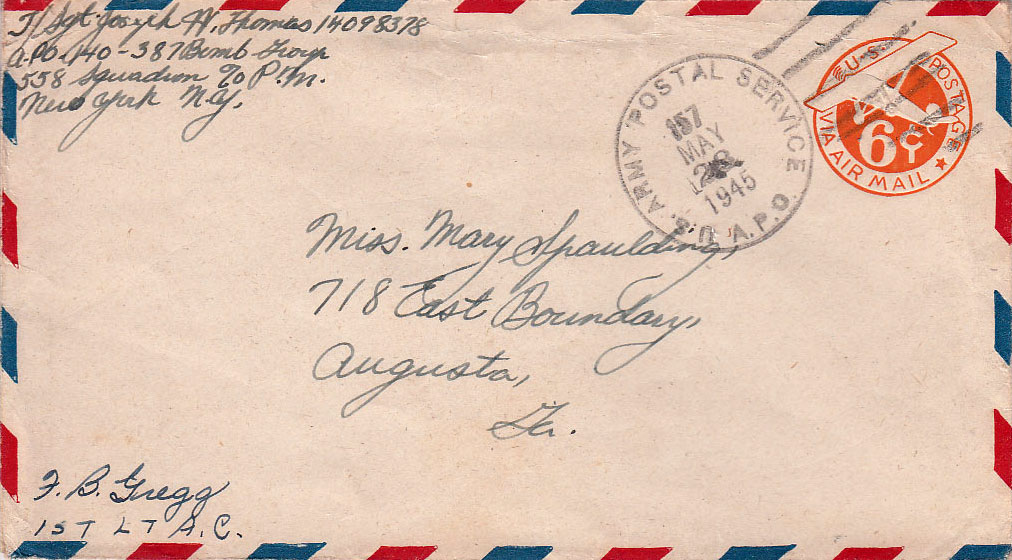 T/Sgt. Joseph W. Thomas 14098378
A.P.O. 140 - 387 Bomb Group
558 Squadron % P.M.
New York N.Y.
U.S. ARMY POSTAL SERVICE A.P.O.
157
MAY
1945
U.S. POSTAGE
6¢
VIA AIR MAIL
Miss. Mary Spaulding,
718 East Boundary,
Augusta,
Ga.
F. B. Gregg
1ST LT A.C.